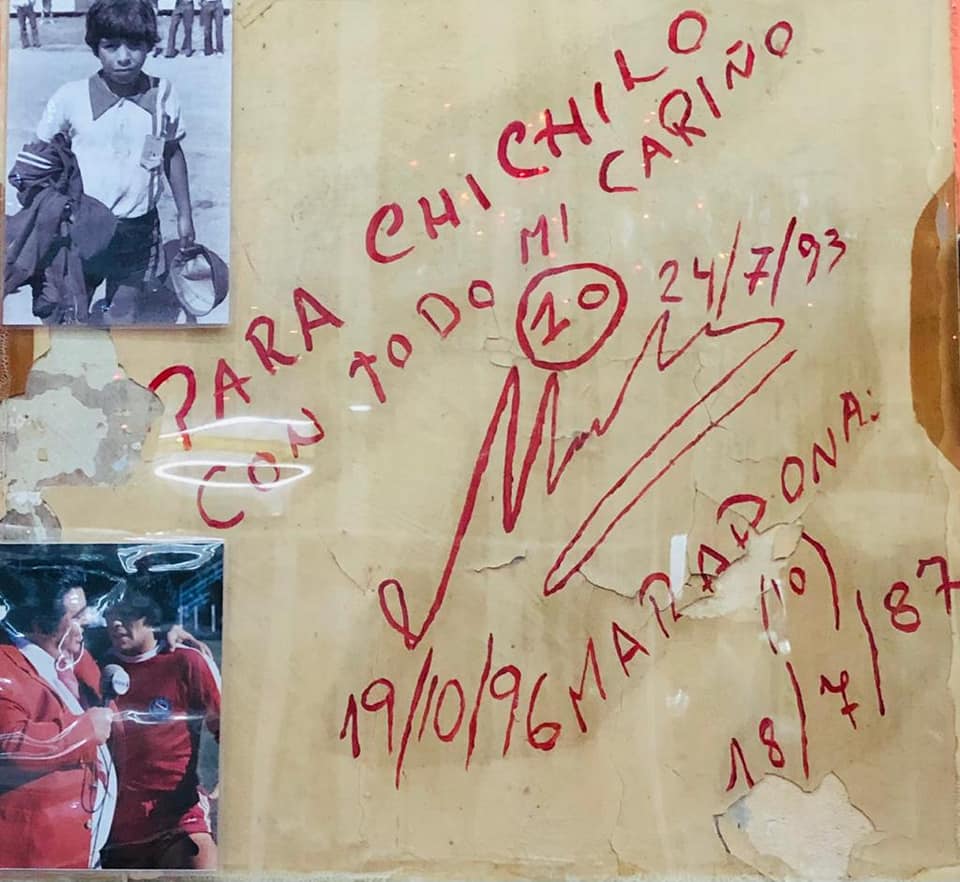 PARA CHICHILO
CON TODO MI CARIÑO
10
24/7/93
MARADONA:
(10)
19/10/96
18/7/87